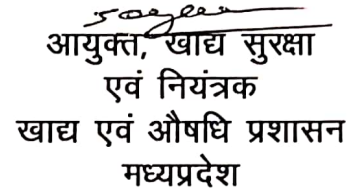 आयुक्त, खाद्य सुरक्षा
एवं नियंत्रक
खाद्य एवं औषधि प्रशासन
मध्यप्रदेश